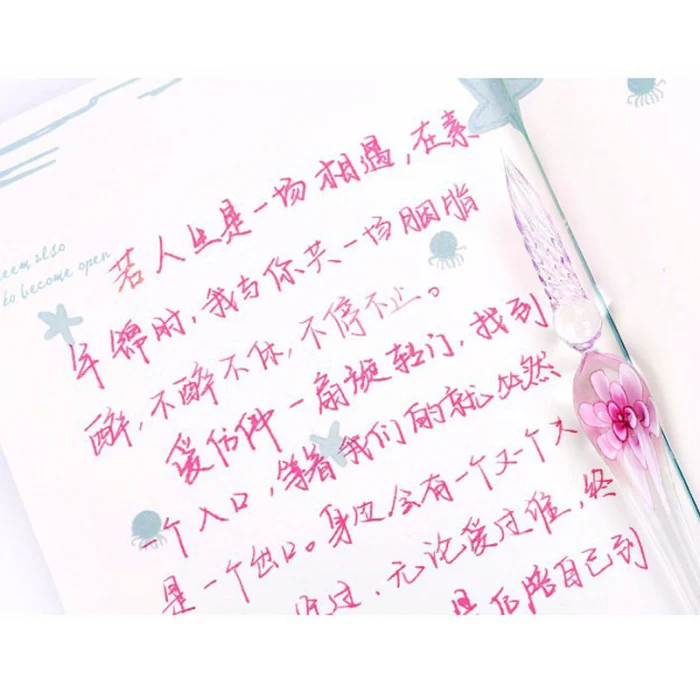 eem also
to become open
若人生是一场相遇,在素
年锦时,我与你共一场胭脂
醉,不醉不休,不停不止。
爱仿佛一扇旋转门,找到
一个入口,等着我们的就必然
是一个出口。身边会有一个又一个人
过,无论爱过谁,终
陪自己到